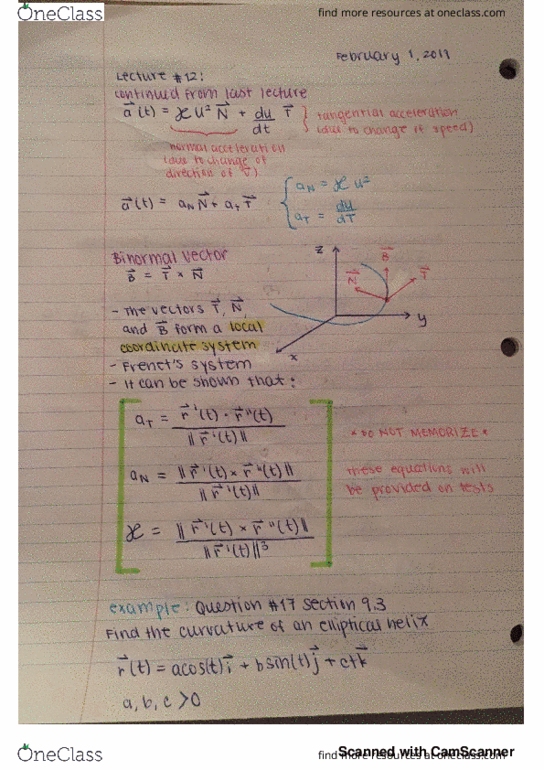 OneClass
find more resources at oneclass.com
February 1, 2019
Lecture #12:
continued from last lecture
a⃗(t) = ϰ u² N⃗ + du/dt T⃗ } tangential acceleration
(due to change if speed)
normal acceleration
(due to change of
direction of v⃗)
a⃗(t) = aN N⃗ + aT T⃗
{ aN = ϰ u²
aT = du/dT
Binormal vector
B⃗ = T⃗ × N⃗
z
B⃗
N⃗
T⃗
y
x
- The vectors T⃗, N⃗,
and B⃗ form a local
coordinate system
- Frenet's system
- it can be shown that:
aT = r⃗'(t) · r⃗''(t) / ‖r⃗'(t)‖
* DO NOT MEMORIZE *
aN = ‖r⃗'(t) × r⃗''(t)‖ / ‖r⃗'(t)‖
these equations will
be provided on tests
ϰ = ‖r⃗'(t) × r⃗''(t)‖ / ‖r⃗'(t)‖³
example: Question #17 section 9.3
Find the curvature of an elliptical helix
r⃗(t) = acos(t)i⃗ + bsin(t)j⃗ + ctk⃗
a, b, c > 0
Scanned with CamScanner
OneClass
find more resources at oneclass.com